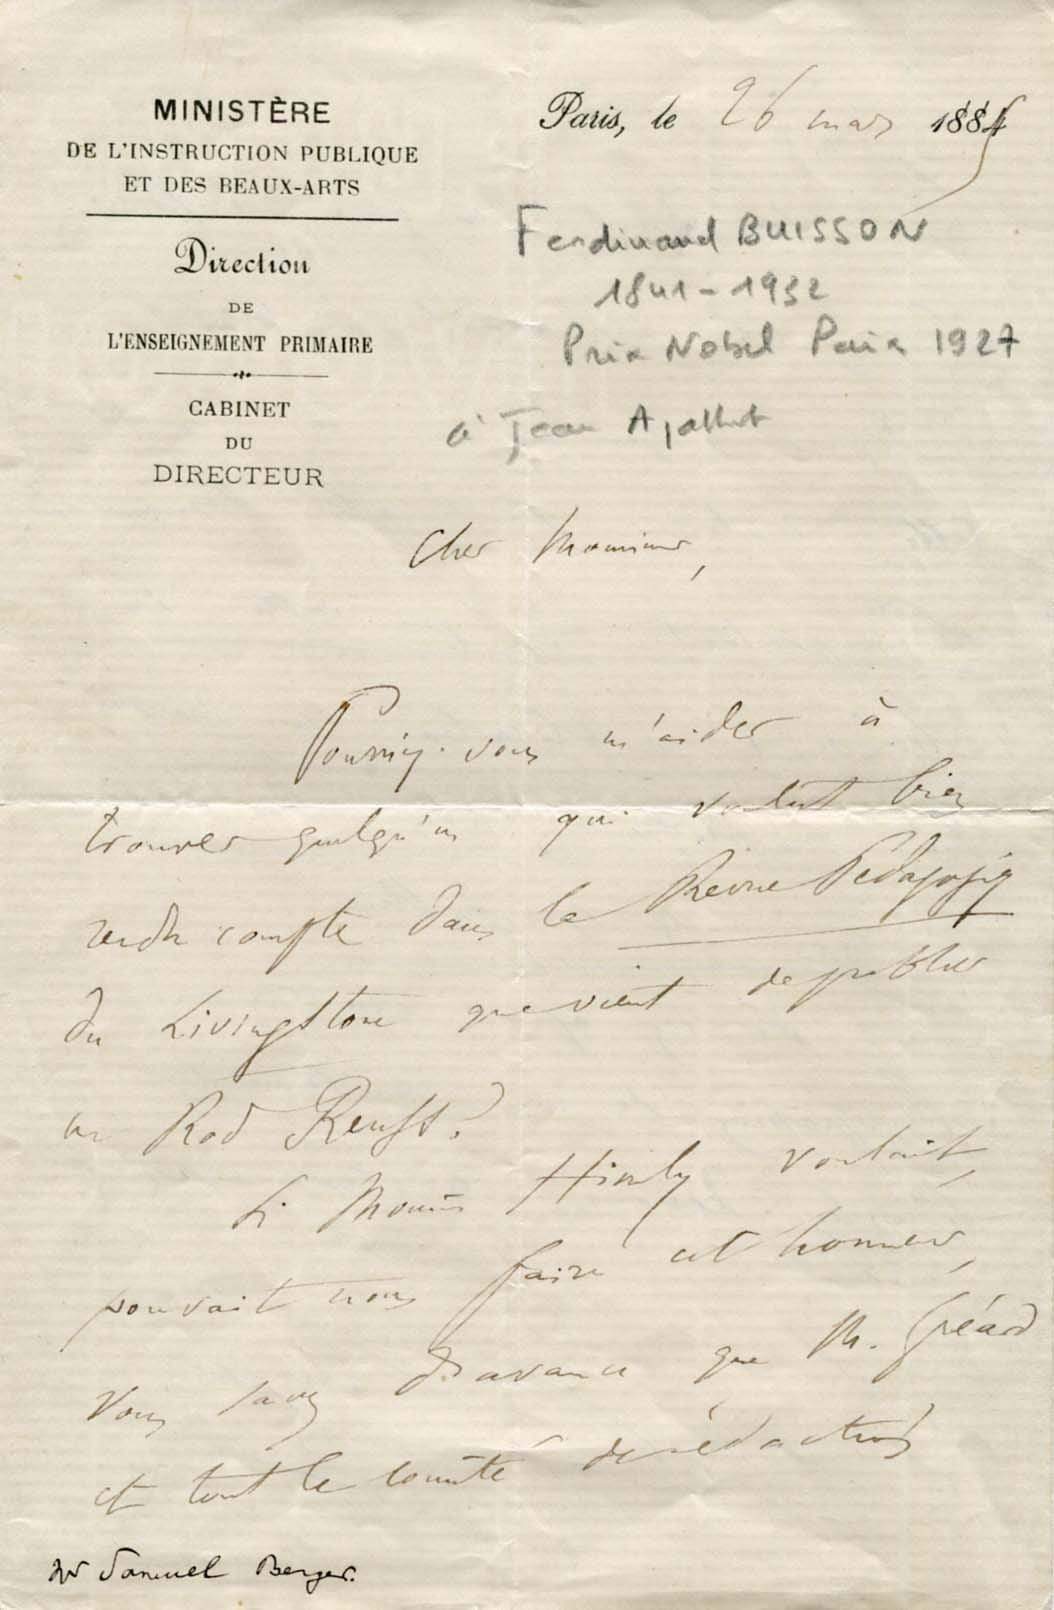 MINISTÈRE
DE L'INSTRUCTION PUBLIQUE
ET DES BEAUX-ARTS
Direction
DE
L'ENSEIGNEMENT PRIMAIRE
CABINET
DU
DIRECTEUR
Paris, le 26 mars 1885
Ferdinand BUISSON
1841-1932
Prix Nobel Paix 1927
à Jean Ajalbert
Cher Monsieur,
Pourriez-vous m'aider à
trouver quelqu'un qui voulut bien
rendre compte dans la Revue Pédagogiq
du Livingstone que vient de publier
un Rod Reuss?
Si Monsr Himly voulait,
pouvait nous faire cet honneur,
vous savez d'avance que M. Gréard
et tout le comité de rédaction
Mr Samuel Berger.